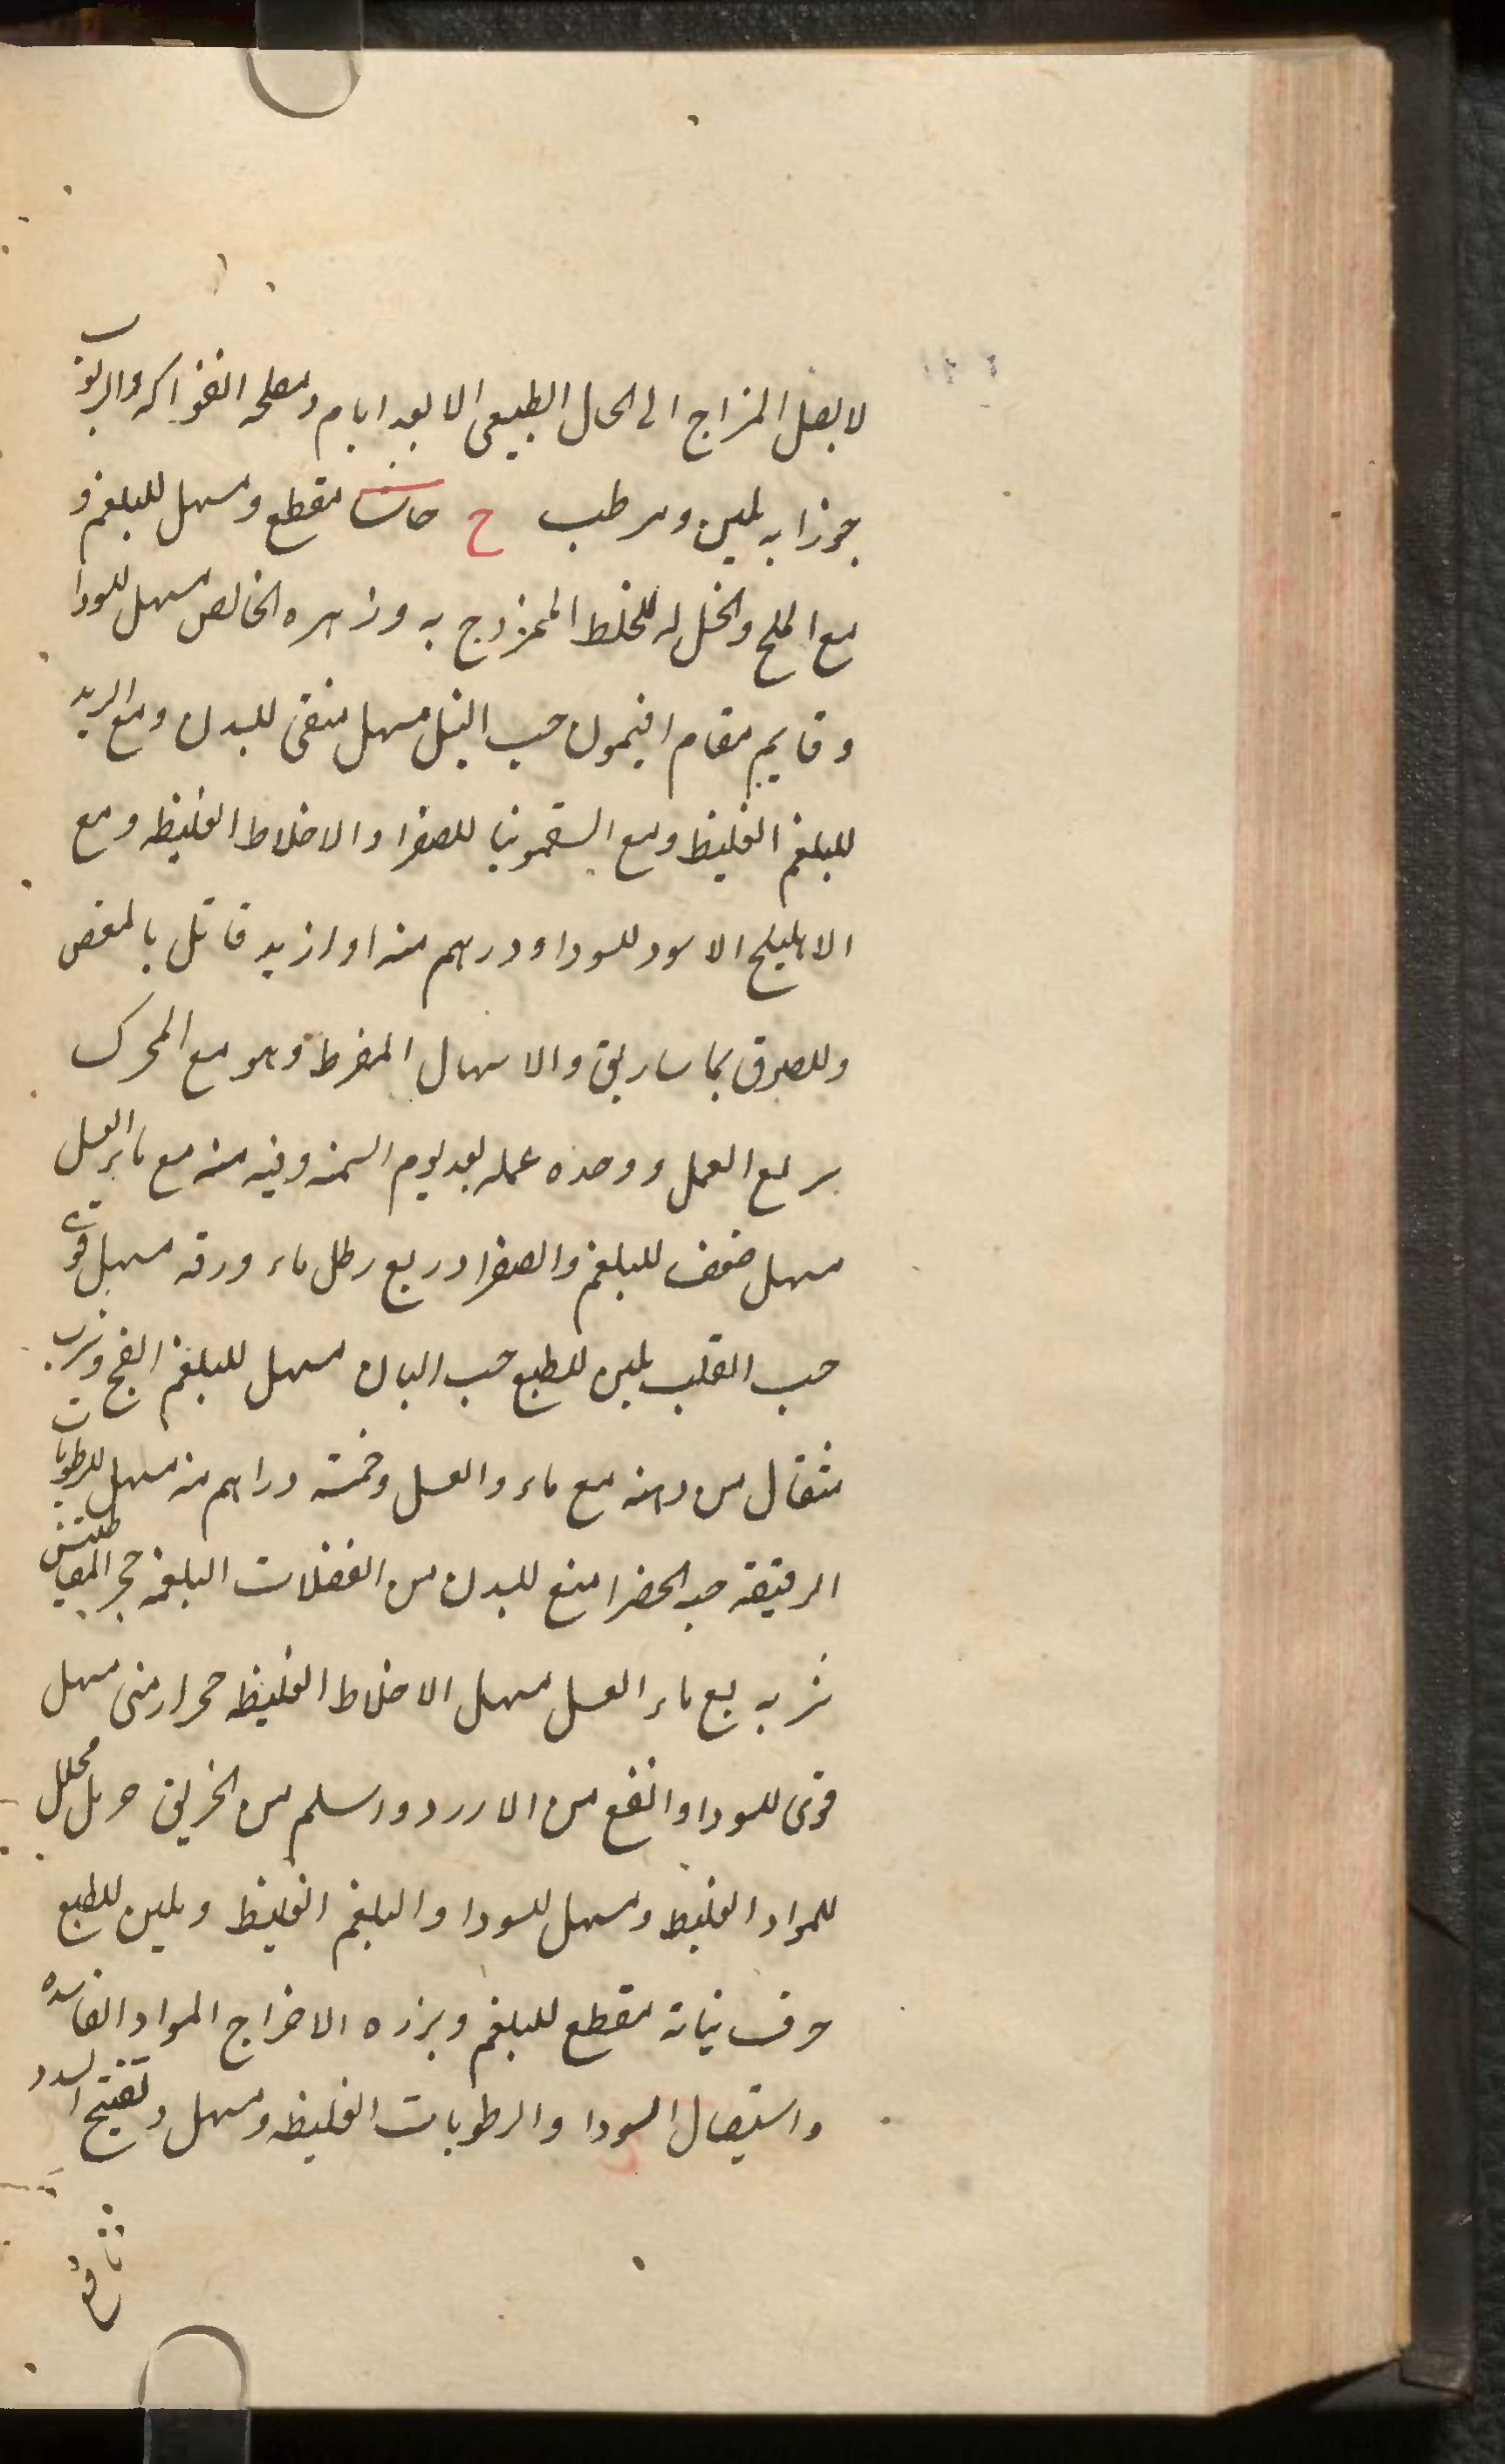 لا يصل المزاج الى الحال الطبيعى الا بعد ايام ومصلحه الفواكه والربوب
جوزابه ملين ومرطب ح حاشا مقطع ومسهل للبلغم و
مع الملح والخل له للخلط الممزوج به وزهره الخالص مسهل للسودا
وقايم مقام افتيمون حب النيل مسهل منقى للبدن ومع التربد
للبلغم الغليظ ومع السقمونيا للصفرا والاخلاط الغليظه ومع
الاهليلج الاسود للسودا ودرهم منه او ازيد قاتل بالمغص
وللصوق بماساريق والاسهال المفرط وهو مع المحرك
سريع العمل ووحده عمله بعد يوم السمنه وفيه منه مع ماء العسل
مسهل ضعف للبلغم والصفرا وربع رطل ماء ورقه مسهل قوى
حب القلب ملين للطبع حب البان مسهل للبلغم الفج وشرب
مثقال من دهنه مع ماء والعسل وخمسة دراهم منه مسهل للرطوبات
الرقيقه حبه الخضرا منع للبدن من الفضلات البلغميه حجر المغناطيس
شربه مع ماء العسل مسهل الاخلاط الغليظه حجر ارمنى مسهل
قوى للسودا وانفع من الازرد واسلم من الخربق حرمل محلل
للمواد الغليظ ومسهل للسودا والبلغم الغليظ وملين للطبع
حرف نباته مقطع للبلغم وبزره الاخراج المواد الفاسده
واستيصال السودا والرطوبات الغليظه ومسهل وتفتيح السدد
نافع